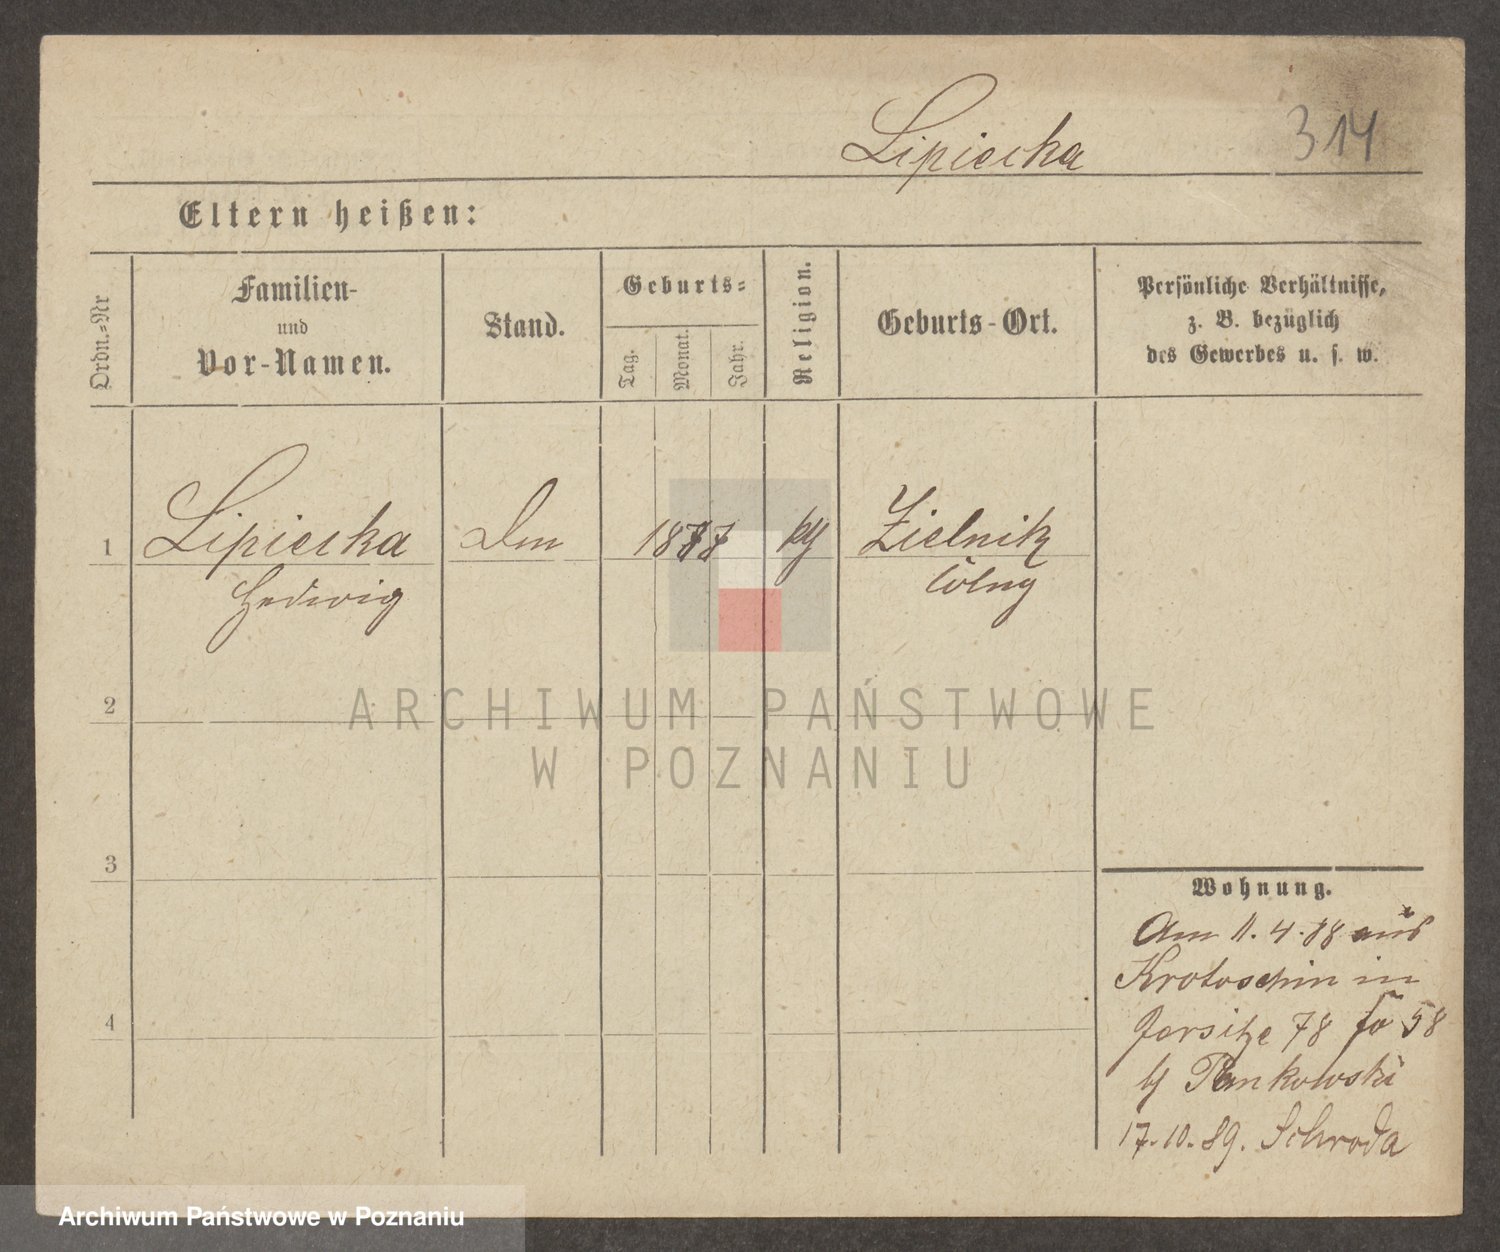 Lipiecka
314
Eltern heißen:
Ordn.-Nr
Familien-
und
Vor-Namen.
Stand.
Geburts-
Tag.
Monat.
Jahr.
Religion.
Geburts-Ort.
Persönliche Verhältnisse,
z. B. bezüglich
des Gewerbes u. s. w.
1
Lipiecka
Hedwig
1877
Zielnik
2
3
4
Wohnung.
Am 11.4.88 aus
Krotoschin in
Jersitze 78 58
Pankowski
17.10.89. Schroda
ARCHIWUM PAŃSTWOWE
W POZNANIU
Archiwum Państwowe w Poznaniu